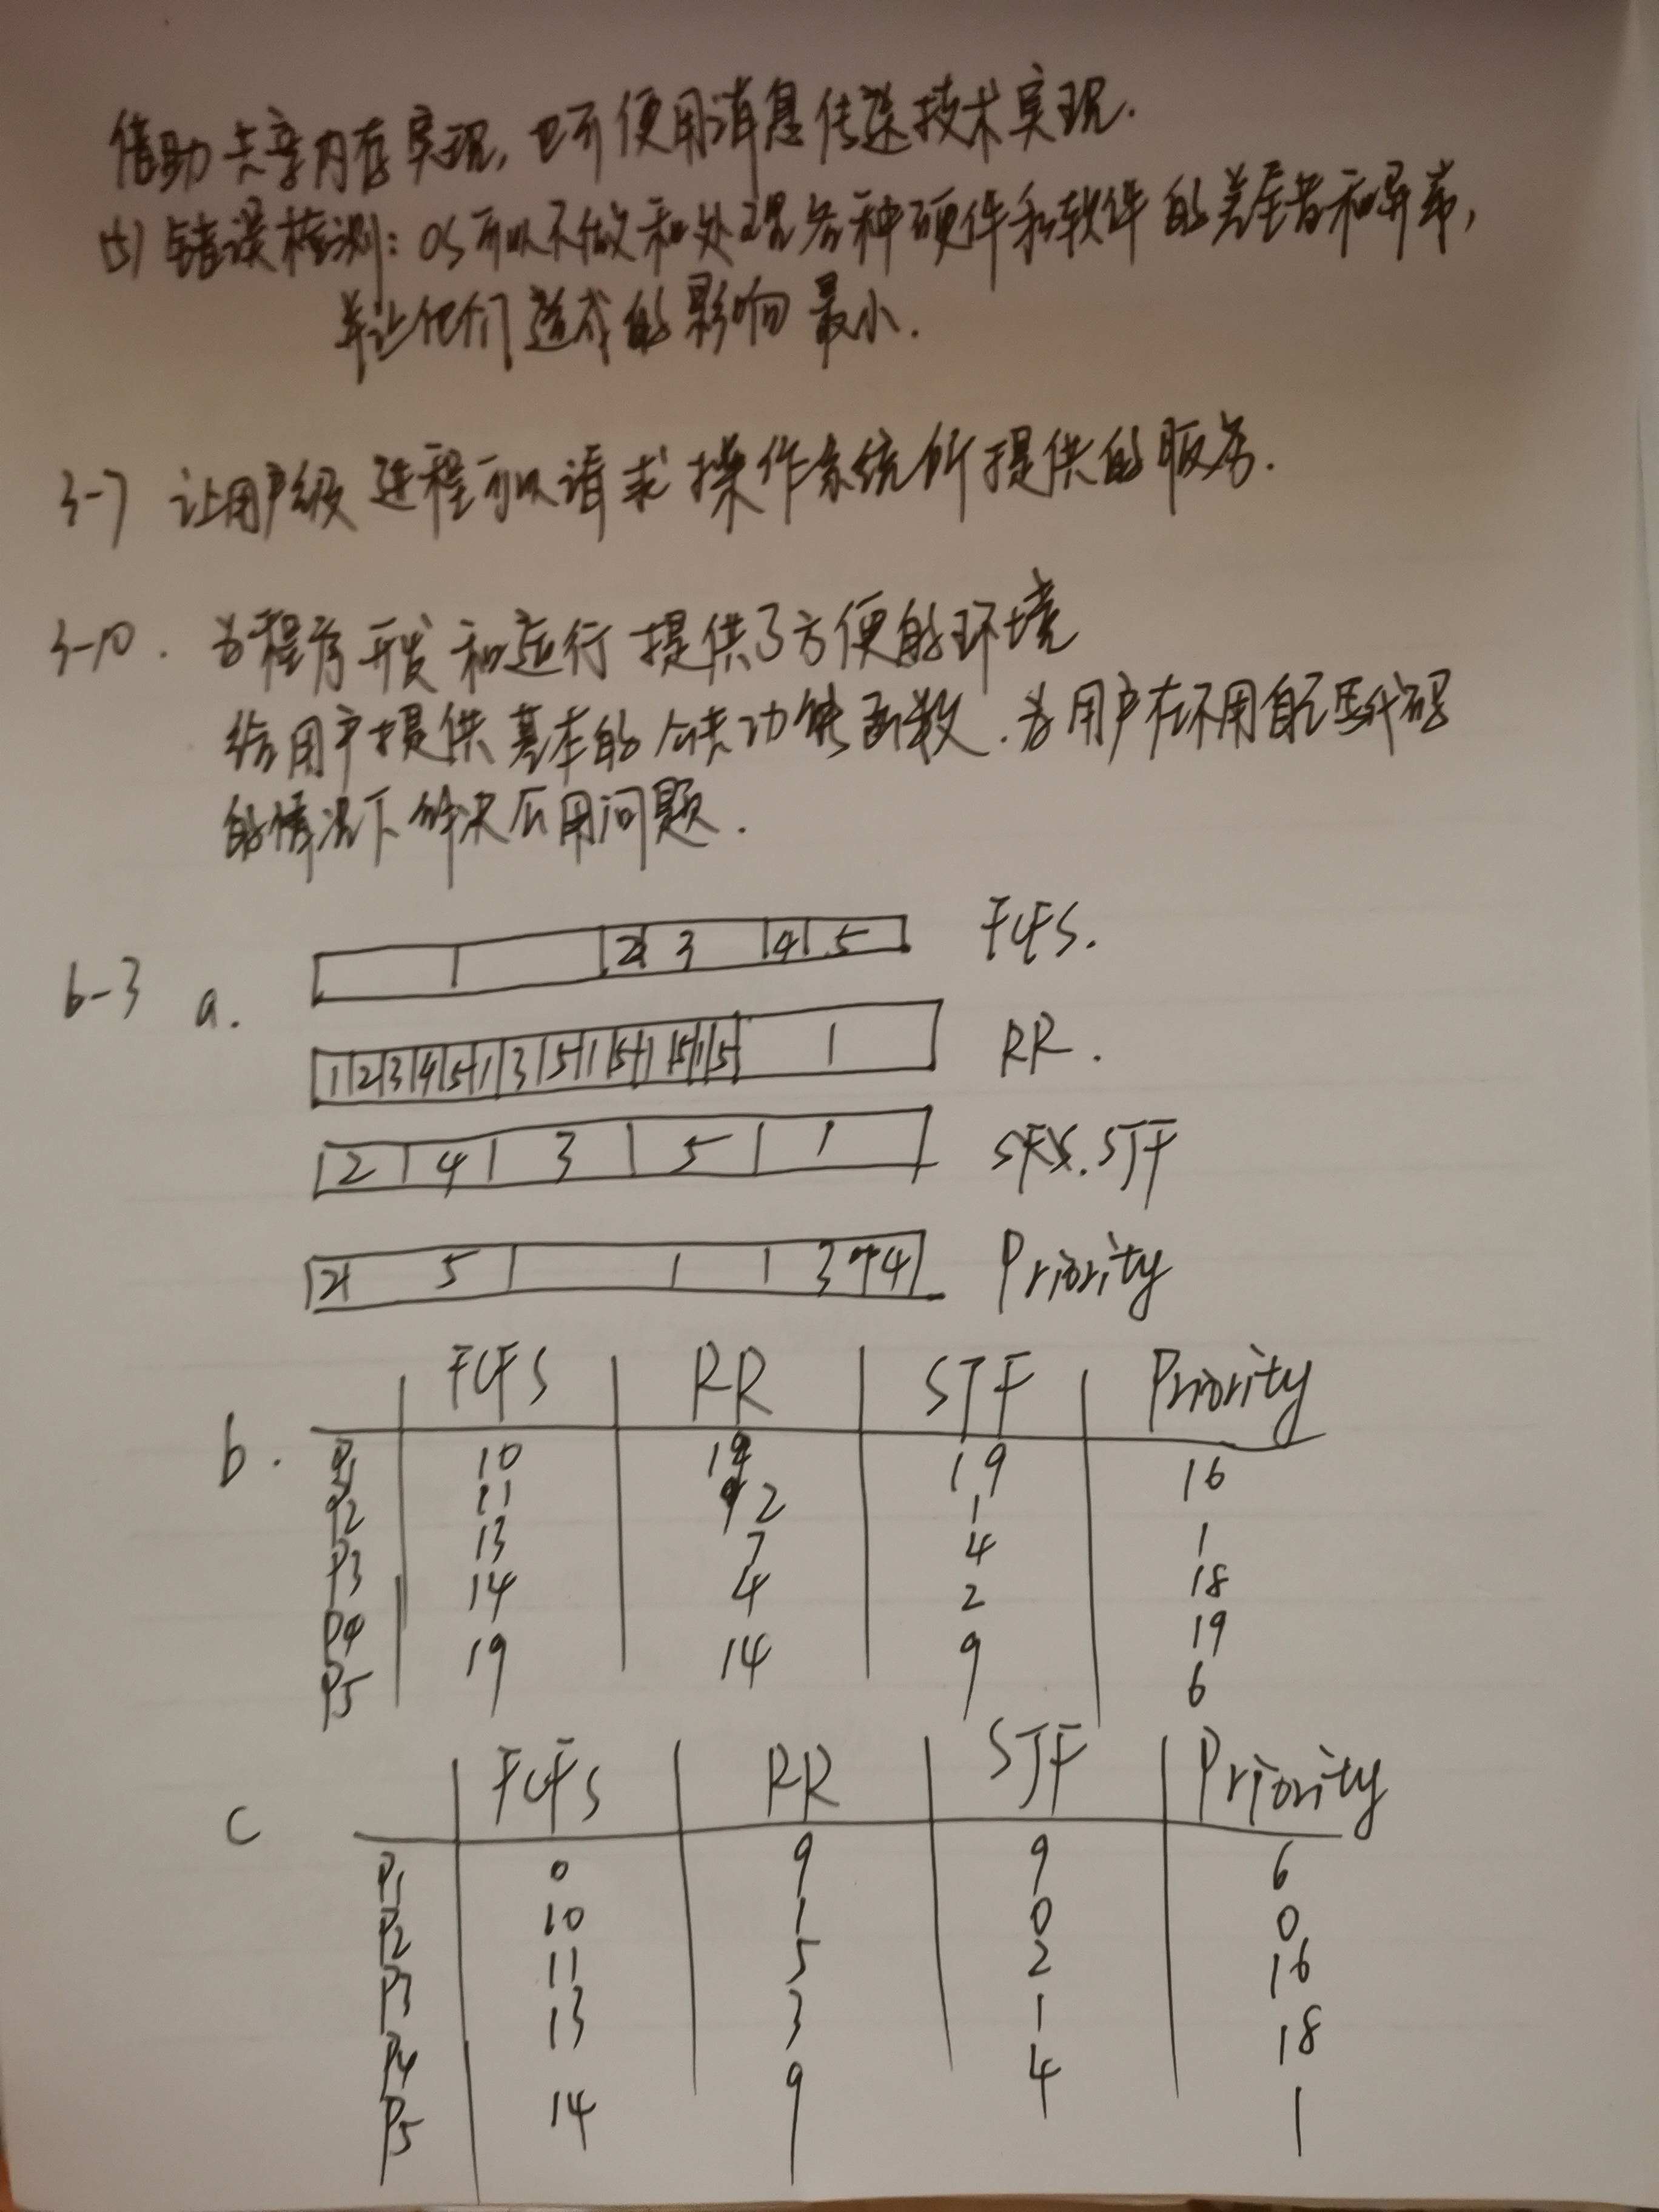 借助共享内存实现,也可使用消息传递技术实现.
(5) 错误检测: OS可以不做和处理各种硬件和软件的差错和异常,
并让他们造成的影响最小.
3-7 让用户级进程可以请求操作系统所提供的服务.
3-10. 为程序开发和运行提供了方便的环境
给用户提供基本的公共功能函数.为用户在不用自己写代码
的情况下解决应用问题.
6-3 a. 1 2 3 4 5 FCFS.
1 2 3 4 5 1 3 5 1 5 1 5 1 5 1 RR.
2 4 3 5 1 SJF
2 5 1 3 4 Priority
b. FCFS RR SJF Priority
P1 10 19 19 16
P2 11 2 1 1
P3 13 7 4 18
P4 14 4 2 19
P5 19 14 9 6
c FCFS RR SJF Priority
P1 0 9 9 6
P2 10 1 0 0
P3 11 5 2 16
P4 13 3 1 18
P5 14 9 4 1